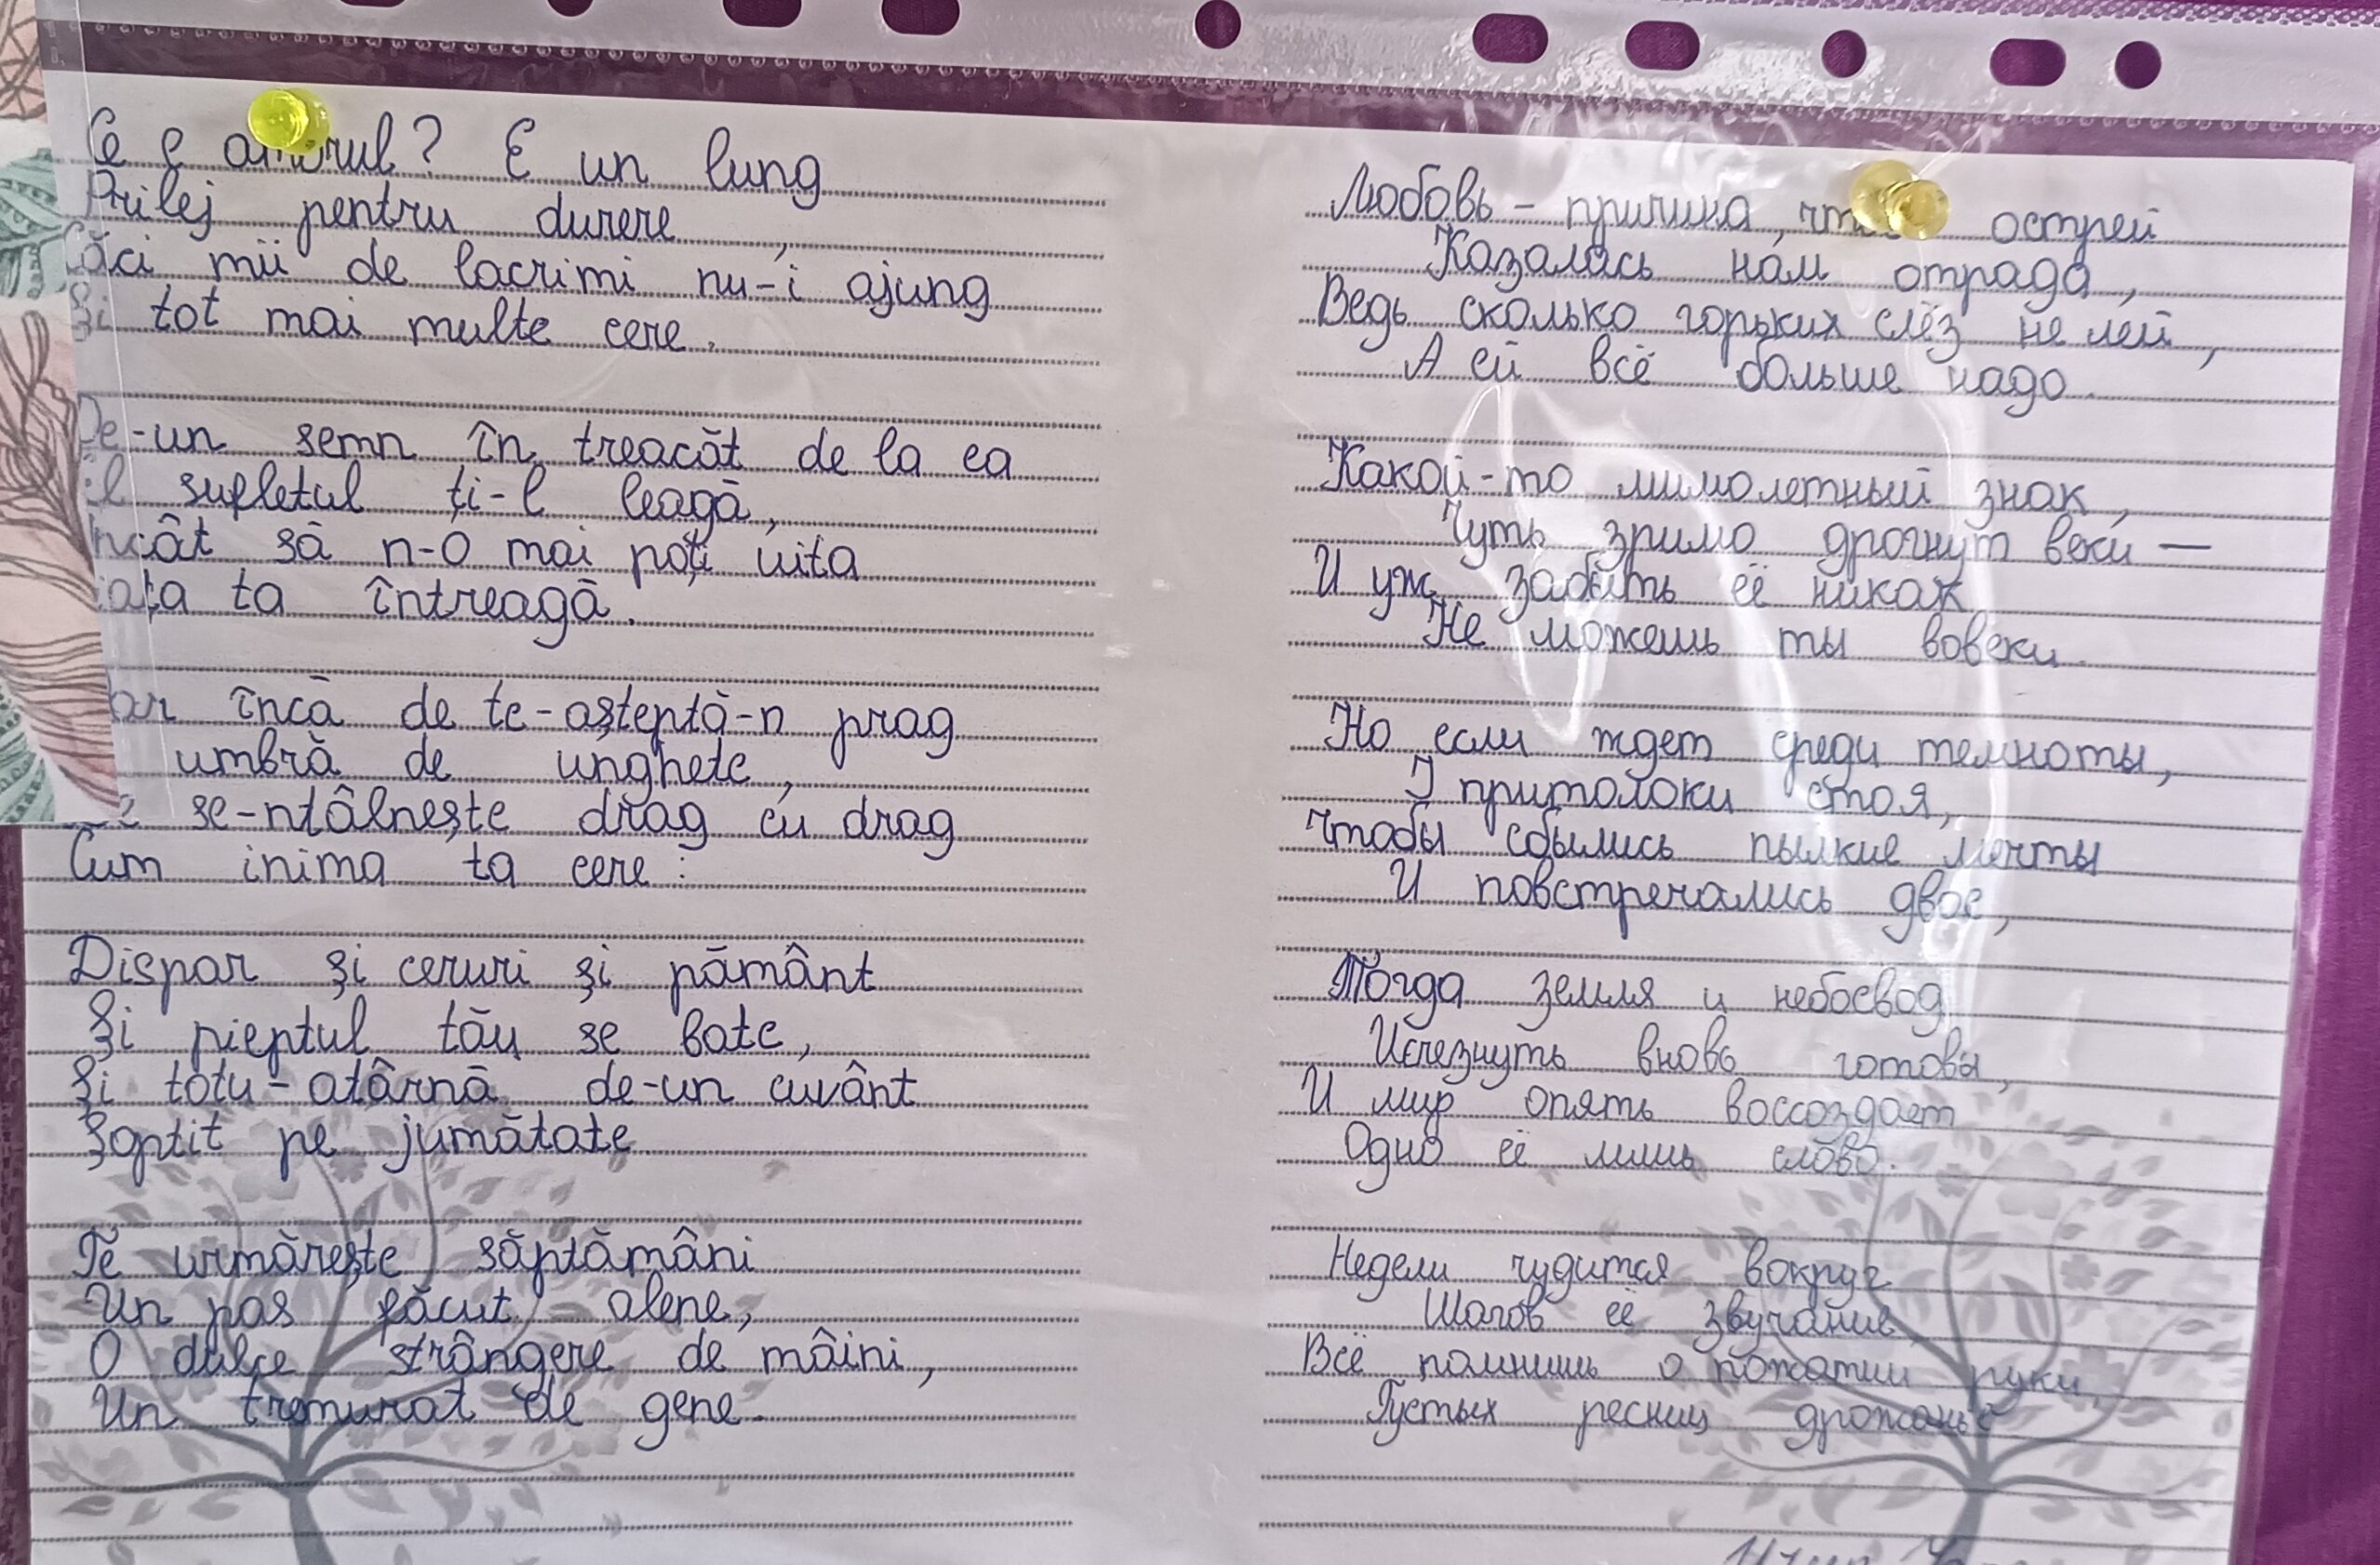 Ce e amorul? E un lung
Prilej pentru durere,
Căci mii de lacrimi nu-i ajung
Și tot mai multe cere.
De-un semn în treacăt de la ea
el sufletul ți-l leagă,
Încât să n-o mai poți uita
ața ta întreagă.
ar încă de te-așteptă-n prag
umbră de unghete,
se-ntâlnește drag cu drag
Cum inima ta cere:
Dispar și ceruri și pământ
Și pieptul tău se bate,
Și totu-atârnă de-un cuvânt
Șoptit pe jumătate
Te urmărește săptămâni
Un pas făcut alene,
O dulce strângere de mâini,
Un tremurat de gene.
Любовь - причина, чтоб острей
Казалась нам отрада,
Ведь сколько горьких слёз не лей,
А ей всё больше надо.
Какой-то мимолетный знак,
Чуть зримо дрогнут веки —
И уж забыть её никак
Не можешь ты вовеки.
Но если ждет среди темноты,
У притолоки стоя,
Чтобы сбылись пылкие мечты
И повстречались двое,
Тогда земля и небосвод
Исчезнуть вновь готовы,
И мир опять воссоздает
Одно её лишь слово.
Недели чудится вокруг
Шагов её звучание,
Всё помнишь о пожатии руки,
Густых ресниц дрожанье